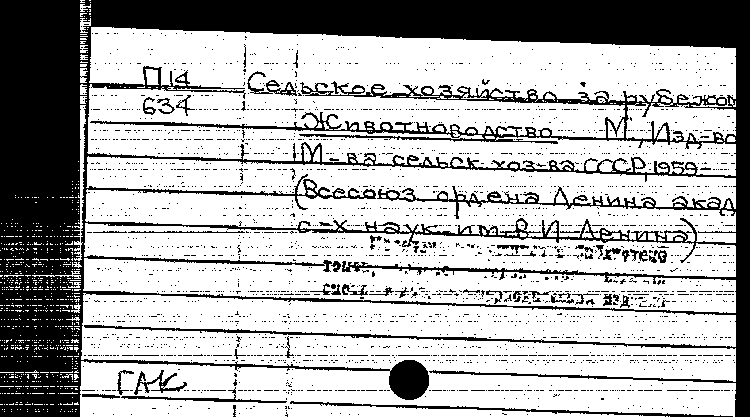 П14 Сельское хозяйство за рубежом
634
Животноводство М, Изд-во
М-ва сельск. хоз-ва СССР, 1959-
(Всесоюз ордена Ленина акад
с-х наук им. В И Ленина)
ГАК